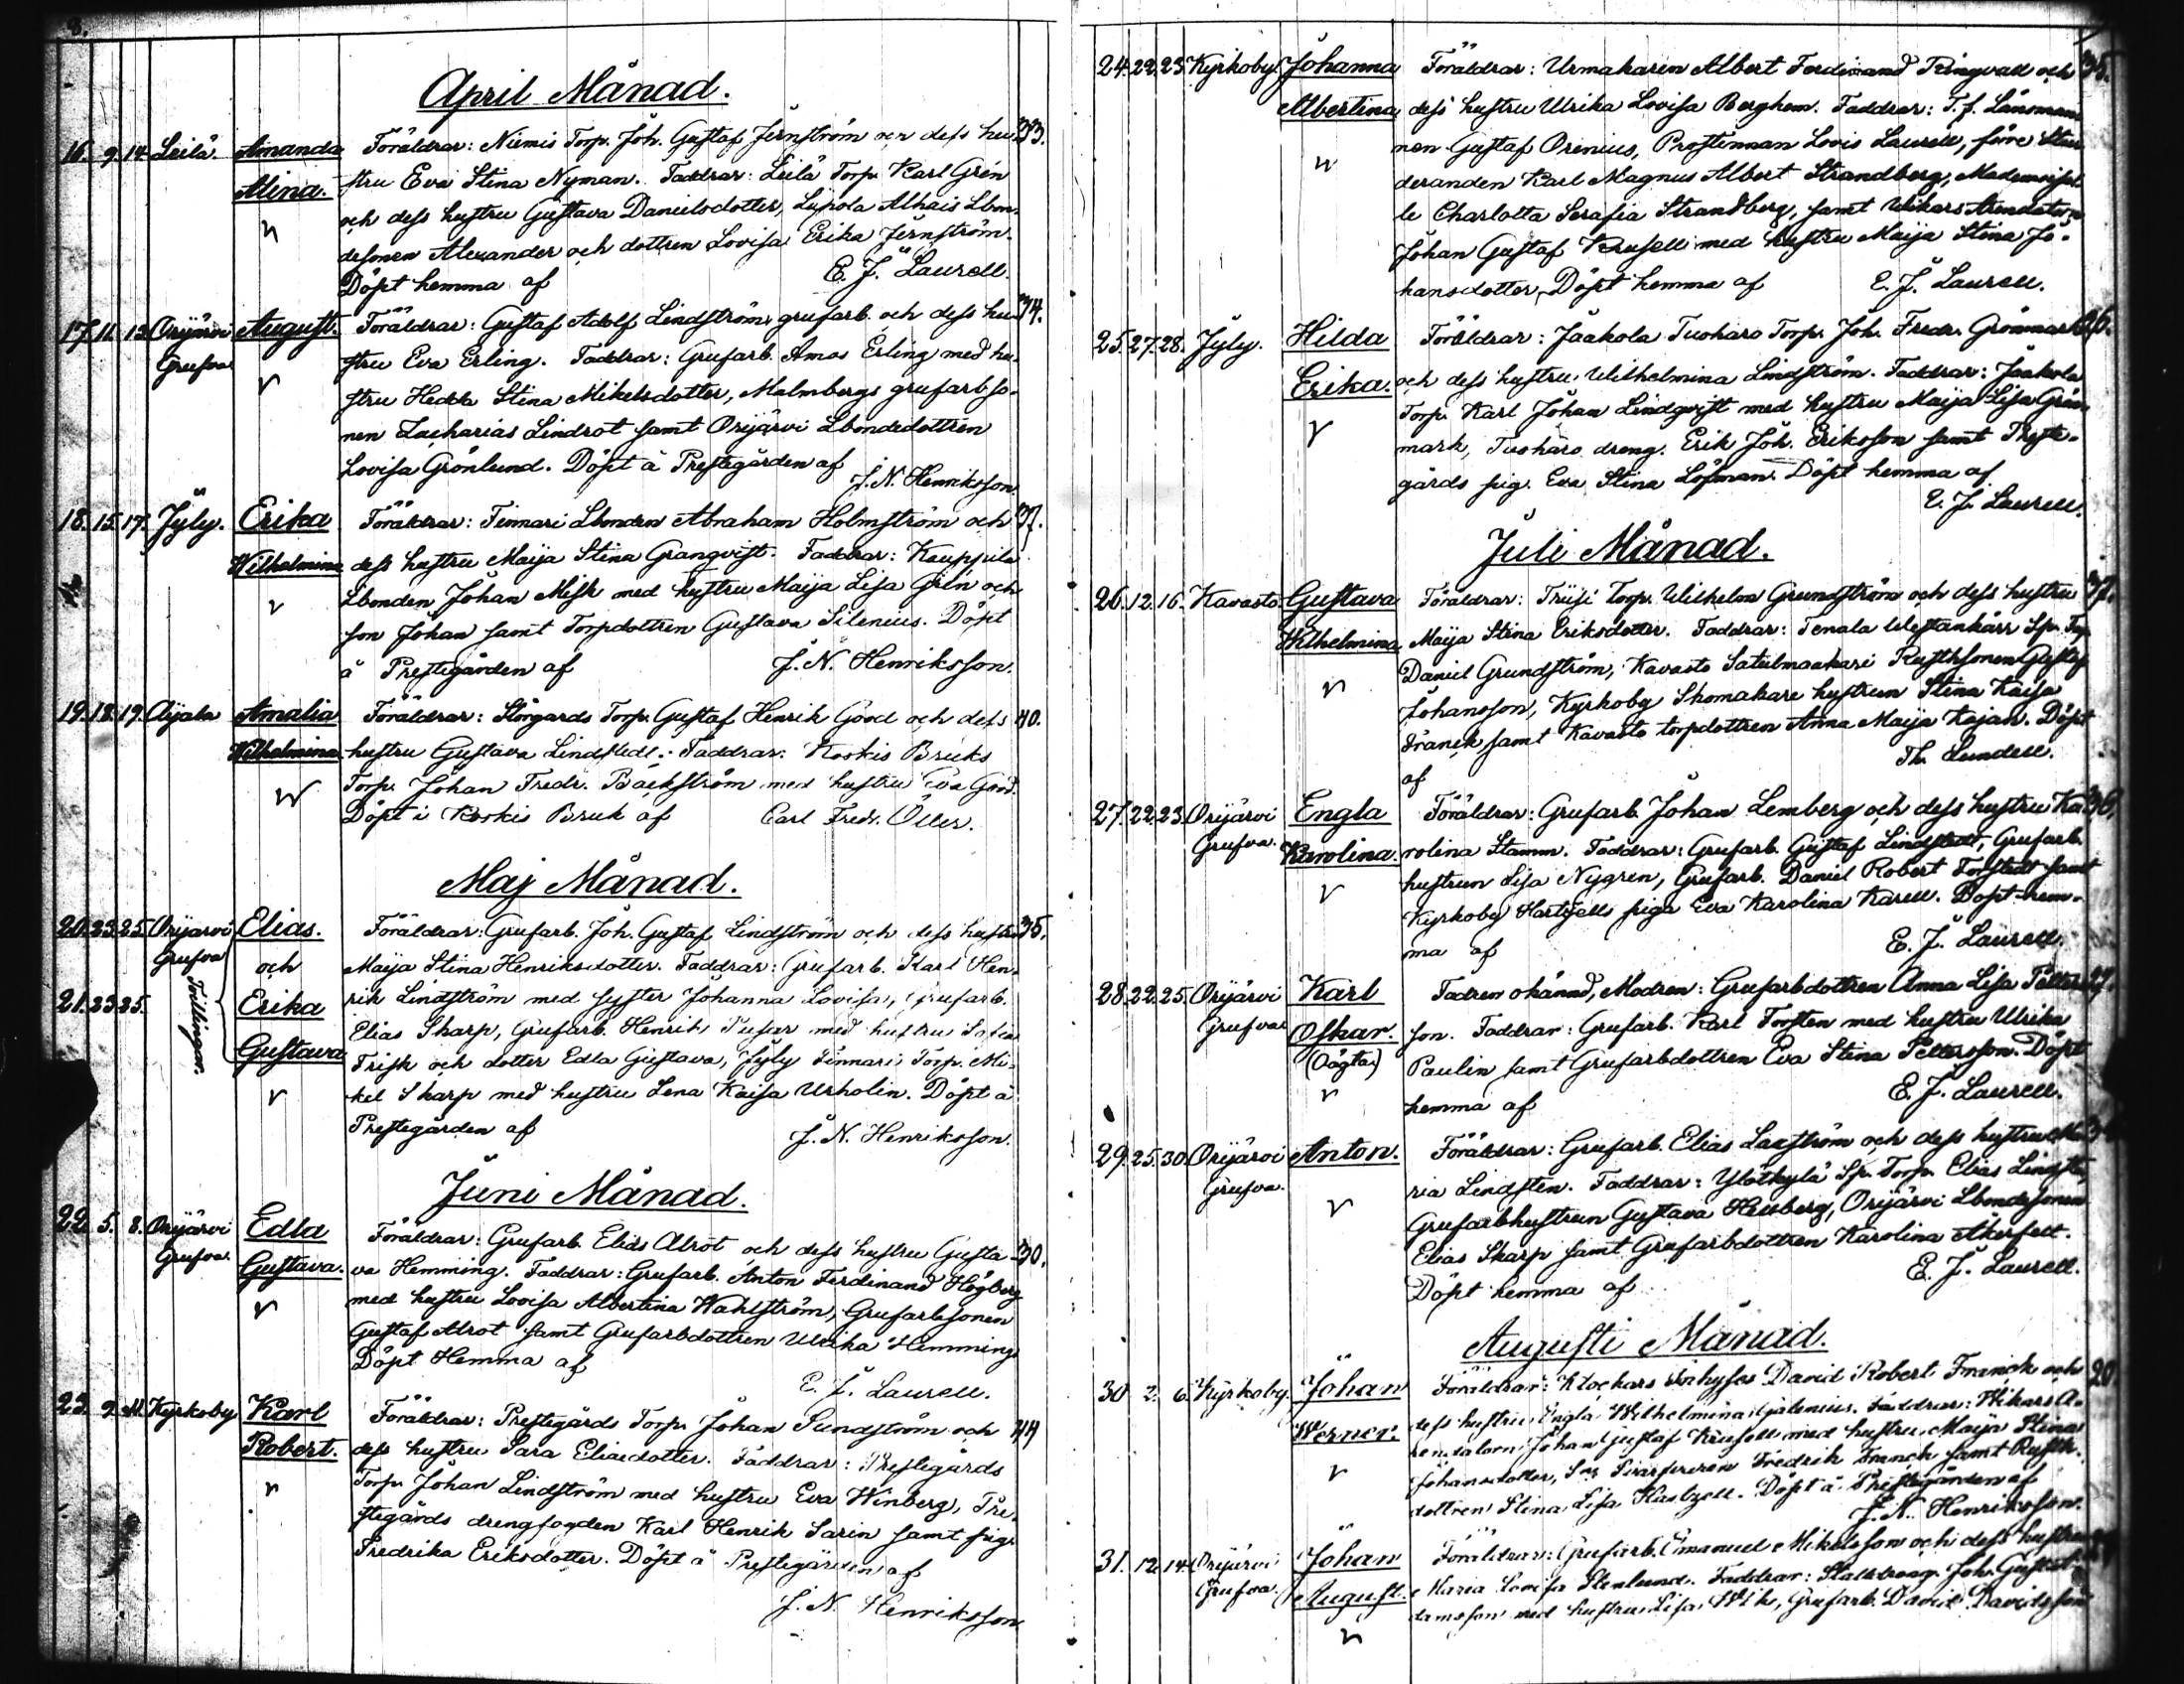 8.
April Månad.
16. 9. 14. Leilä. Amanda Föräldrar: Niemis Torp. Joh. Gustaf Jernström och dess hu- 33.
Alina. stru Eva Stina Nyman. Faddrar: Leilä Torp. Karl Grén
och dess hustru Gustava Danielsdotter, Lupola Alhais Lbon-
desonen Alexander och dottren Lovisa Erika Jernström.
Döpt hemma af E. J. Laurell.
17. 11. 13. Orijärvi August. Föräldrar: Gustaf Adolf Lindström, grufarb. och dess hu- 34.
Grufva stru Eva Erling. Faddrar: Grufarb. Amos Erling med hu-
stru Hedda Stina Mikelsdotter, Malmbergs grufarb.so-
nen Zacharias Lindrot samt Orijärvi Lbondedottren
Lovisa Grönlund. Döpt å Prestegården af
J. N. Henriksson.
18. 15. 17. Jyly. Erika Föräldrar: Finnari Lbonden Abraham Holmström och 37.
Wilhelmina dess hustru Maija Stina Granqvist. Faddrar: Kauppila
Lbonden Johan Misk med hustru Maija Lisa Grén och
son Johan samt Torpdottren Gustava Silenius. Döpt
å Prestegården af J. N. Henriksson.
19. 18. 19. Aijala Amalia Föräldrar: Storgards Torp. Gustaf Henrik Good och dess 40.
Wilhelmina hustru Gustava Lindstedt. Faddrar: Koskis Bruks
Torp. Johan Fredr. Bäckström med hustru Eva Good.
Döpt i Koskis Bruk af Carl Fredr. Öller.
Maj Månad.
20. 23. 25. Orijärvi Elias. Föräldrar: Grufarb. Joh. Gustaf Lindström och dess hustru 35.
Grufva och Maija Stina Henriksdotter. Faddrar: Grufarb. Karl Hen-
21. 23. 25. Tvillingar. Erika rik Lindström med syster Johanna Lovisa, Grufarb.
Elias Skarp, Grufarb. Henrik Pusar med hustru Sofia
Gustava Frisk och dotter Edla Gustava, Jyly Finnari Torp. Mi-
kel Skarp med hustru Lena Kaisa Urholin. Döpt å
Prestegården af J. N. Henriksson.
Juni Månad.
22. 5. 8. Orijärvi Edla Föräldrar: Grufarb. Elias Alrot och dess hustru Gusta- 30.
Grufva. Gustava. va Hemming. Faddrar: Grufarb. Anton Ferdinand Högberg
med hustru Lovisa Albertina Wahlström, Grufarbsonen
Gustaf Alrot samt Grufarbdottren Ulrika Hemming.
Döpt Hemma af
E. J. Laurell.
23. 9. 11. Kyrkoby Karl Föräldrar: Prestegårds Torp. Johan Sundström och 44
Robert. dess hustru Sara Eliaedotter. Faddrar: Prestegårds
Torp. Johan Lindström med hustru Eva Winberg, Pre-
stegårds drengfogden Karl Henrik Sarin samt pig.
Fredrika Eriksdotter. Döpt å Prestegården af
J. N. Henriksson
24. 22. 23. Kyrkoby. Johanna Föräldrar: Urmakaren Albert Ferdinand Ringvall och 35.
Albertina dess hustru Ulrika Lovisa Berghem. Faddrar: T. f. Länsman-
nen Gustaf Orenius, Prostinnan Lovis Laurell, före Stu-
deranden Karl Magnus Albert Strandberg, Mademoisel-
le Charlotta Serafia Strandberg, samt Wikars Arendatorn
Johan Gustaf Krusell med hustru Maija Stina Jo-
hansdotter, Döpt hemma af E. J. Laurell.
25. 27. 28. Jyly. Hilda Föräldrar: Jaakola Tuoharo Torp. Joh. Fredr. Grönmark 36.
Erika. och dess hustru Wilhelmina Lindström. Faddrar: Jaakola
Torp. Karl Johan Lindqvist med hustru Maija Lisa Grön-
mark, Tuoharo dreng. Erik Joh. Eriksson samt Preste-
gårds pig. Eva Stina Löfman. Döpt hemma af
E. J. Laurell.
Juli Månad.
26. 12. 16. Kavasto Gustava Föräldrar: Triisi Torp. Wilhelm Grundström och dess hustru 37.
Wilhelmina Maija Stina Eriksdotter. Faddrar: Tenala Westankärr Sp. Torp.
Daniel Grundström, Kavasto Satulmaakari Rusthsonen Gustaf
Johansson, Kyrkoby Skomakare hustrun Stina Kaisa
Franck samt Kavasto torpdottren Anna Maija Kajan. Döpt
af Th. Lundell.
27. 22. 23. Orijärvi Engla Föräldrar: Grufarb. Johan Lemberg och dess hustru Ka- 30.
Grufva. Karolina. rolina Stamm. Faddrar: Grufarb. Gustaf Lindstedt, Grufarb.
hustrun Lisa Nygren, Grufarb. Daniel Robert Forstedt samt
Kyrkoby Hartzells piga Eva Karolina Karell. Döpt hem-
ma af E. J. Laurell.
28. 22. 25. Orijärvi Karl Fadren okännd, Modren: Grufarbdottren Anna Lisa Petters- 27.
Grufva Oskar. son. Faddrar: Grufarb. Karl Torsten med hustru Ulrika
(Oägta) Paulin samt Grufarbdottren Eva Stina Pettersson. Döpt
hemma af E. J. Laurell.
29. 25. 30. Orijärvi Anton. Föräldrar: Grufarb. Elias Laxström och dess hustru Ma-
Grufva. ria Lindsten. Faddrar: Ylötkylä Sp. Torp. Elias Lindsten,
Grufarbhustrun Gustava Heusberg, Orijärvi Lbondesonen
Elias Skarp samt Grufarbdottren Karolina Åkerfelt.
Döpt hemma af E. J. Laurell.
Augusti Månad.
30 2. 6. Kyrkoby. Johan Föräldrar: Klockars Inhyses David Robert Franck och 20.
Werner. dess hustru Engla Wilhelmina Galenius. Faddrar: Wikars A-
rendatorn Johan Gustaf Krusell med hustru Maija Stina
Johansdotter, Fredrik Franck samt Rusth.
dottren Stina Lisa Hasbzell. Döpt å Prestegården af
J. N. Henriksson.
31. 12. 14. Orijärvi Johan Föräldrar: Grufarb. Emanuel Mikelsson och dess hustru
Grufva. August. Maria Lovisa Stenlund. Faddrar: Stalldreng. Joh. Gustaf A-
damsson med hustru Lisa Wik, Grufarb. David Davidsson